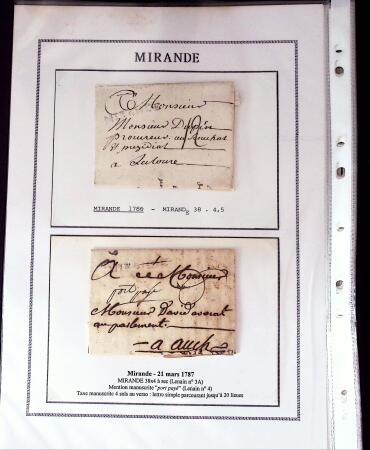 MIRANDE
A Monsieur
Monsieur
procureur au
et presidial
a
MIRANDE 1780 - MIRANDS 38 . 4,5
A Monsieur
port payé
Monsieur David avocat
au parlement
a auch
Mirande - 21 mars 1787
MIRANDE 38x4 à sec (Lenain n° 3A)
Mention manuscrite "port payé" (Lenain n° 4)
Taxe manuscrite 4 sols au verso : lettre simple parcourant jusqu'à 20 lieues